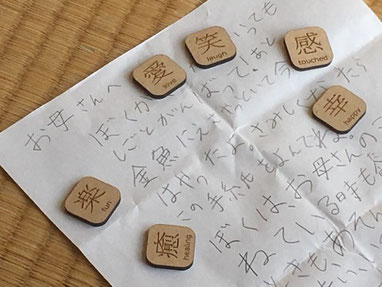 お母さんへ
ぼくが いっても
しごとがんばって!あと
金魚にえさやっといて今
はやったよ。さみしくなったら
この手紙をよんでね。
ぼくは、お母さんの
ねている日も
きもあそん
愛
love
笑
laugh
感
touched
幸
happy
楽
fun
癒
healing